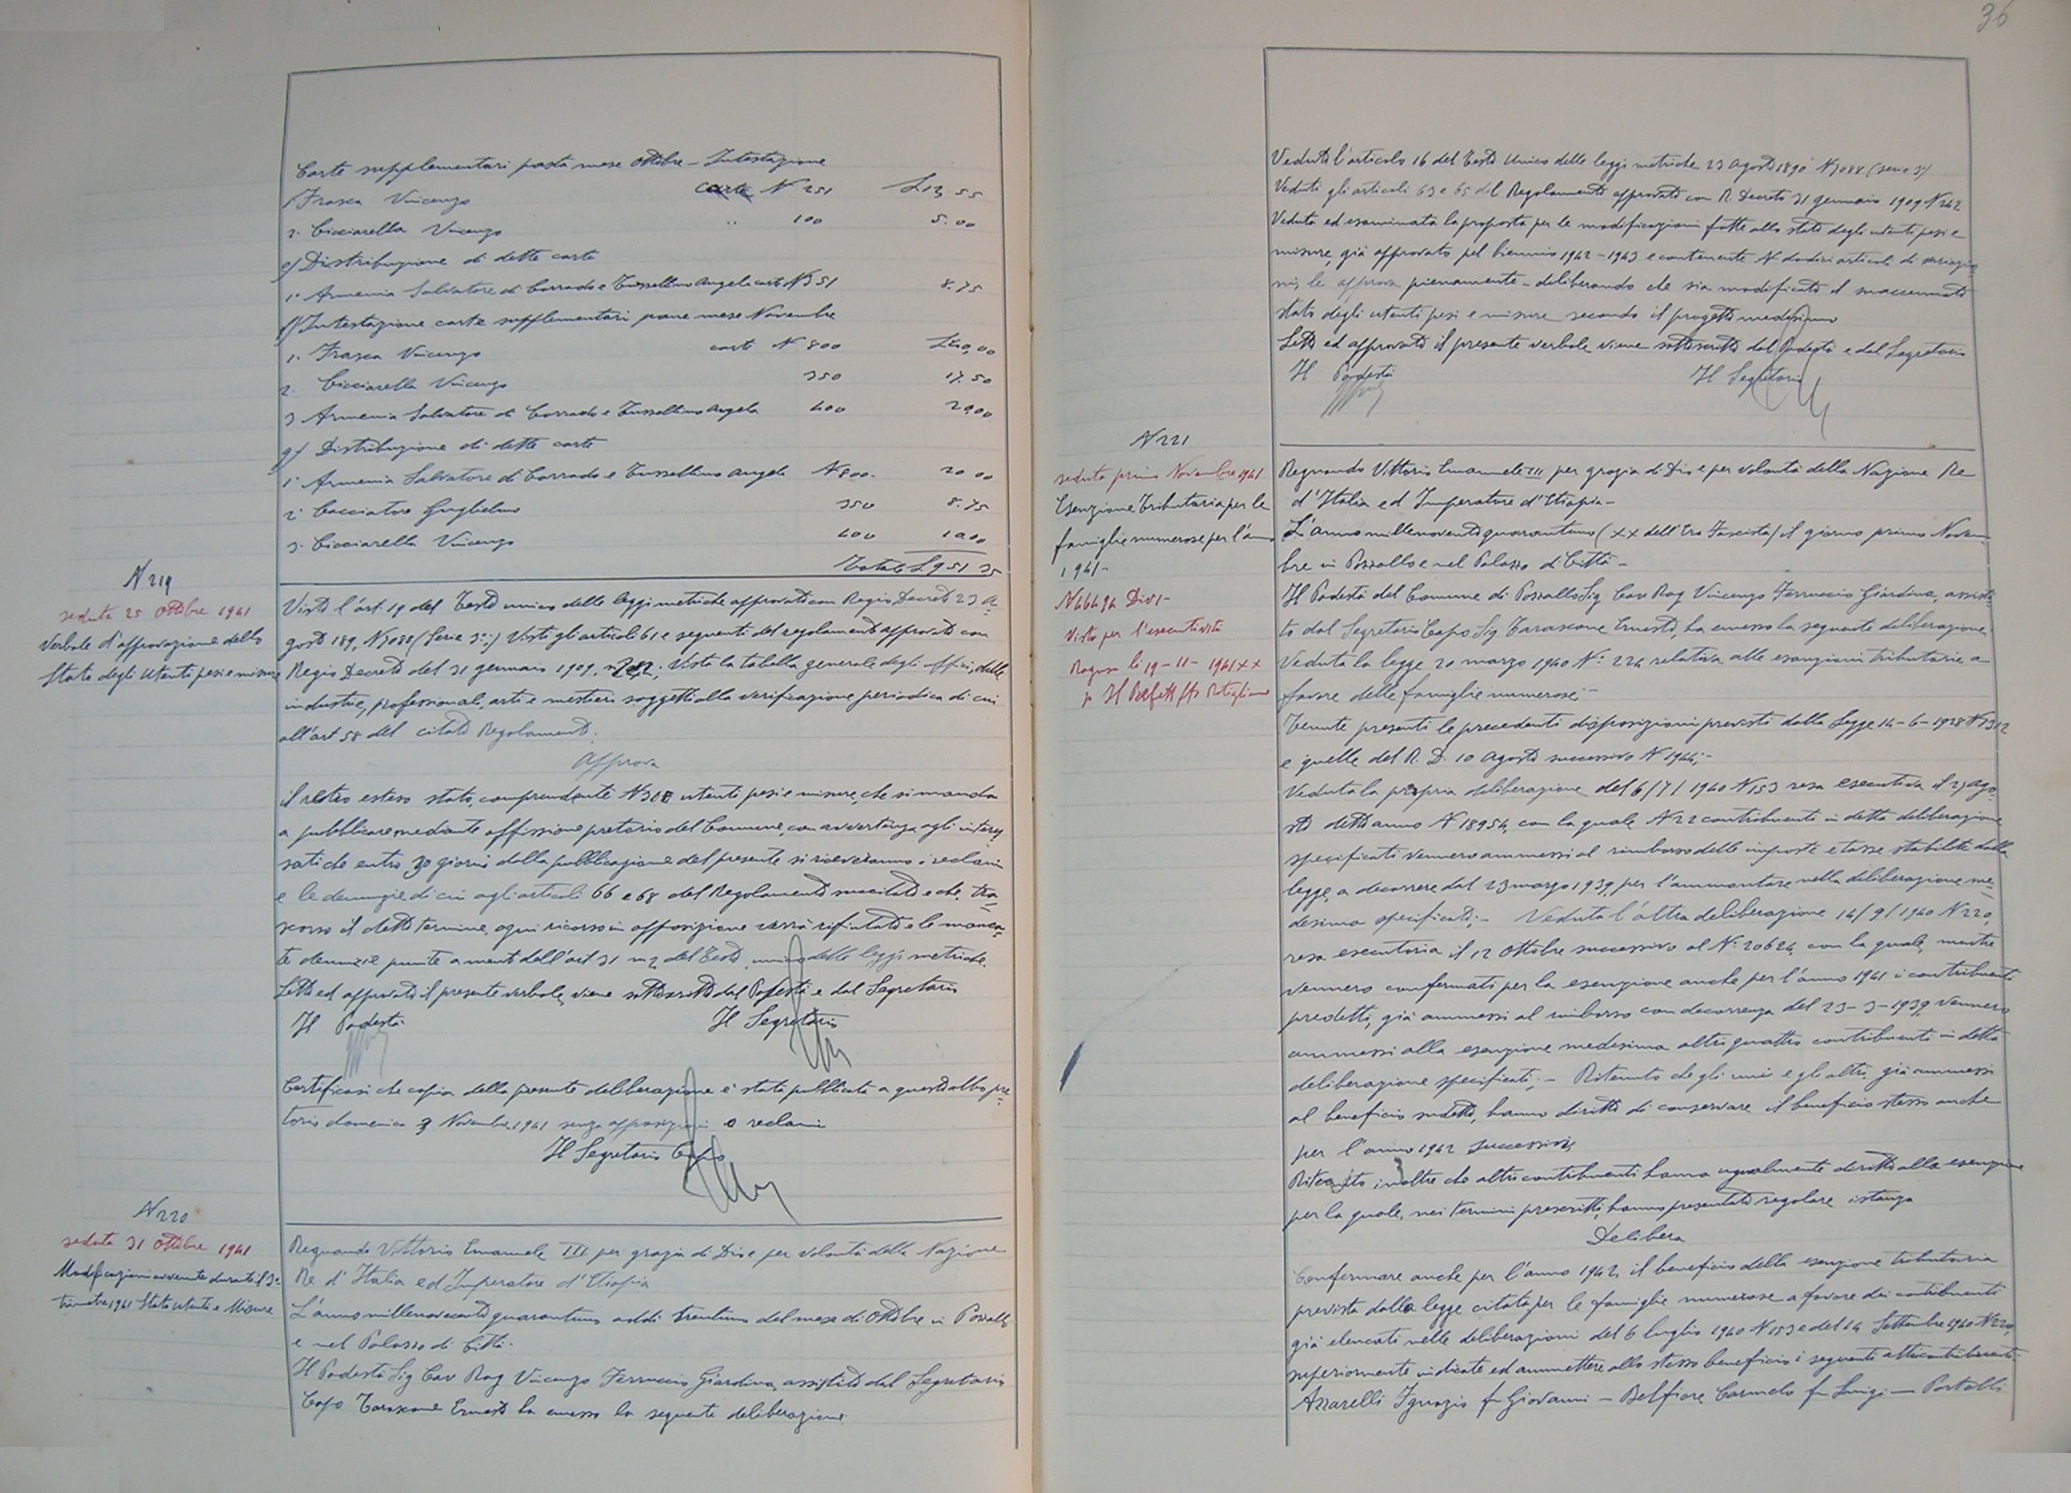 Carte supplementari pasta mese Ottobre - Intestazione
1) Frasca Vincenzo carte N 251 £ 12,55
2. Cicciarella Vincenzo " 100 5.00
e) Distribuzione di dette carte
1° Armenia Salvatore di Corrado e Tussellino Angela carte N 351 8.75
f) Intestazione carte supplementari pane mese Novembre
1. Frasca Vincenzo carte N 800 £ 40,00
2. Cicciarella Vincenzo 350 17.50
3 Armenia Salvatore di Corrado e Tussellino Angela 400 20,00
g) Distribuzione di dette carte
1° Armenia Salvatore di Corrado e Tussellino Angela N 800. 20 00
2 Cacciatore Guglielmo 350 8.75
3. Cicciarella Vincenzo 400 10,00
Totale £ 951 35
N 219
seduta 25 Ottobre 1941
Verbale d'approvazione dello
Stato degli Utenti pesi e misure
Visto l'art. 19 del Testo unico delle leggi metriche approvato con Regio Decreto 23 A-
gosto 189, N 3088 (Serie 3ª;) Visti gli articoli 61 e seguenti del regolamento approvato con
Regio Decreto del 31 gennaio 1909. n 242; Vista la tabella generale degli uffici, delle
industrie, professionali, arti e mestieri soggetti alla verificazione periodica di cui
all'art 58 del citato Regolamento;
Approva
il retro esteso stato, comprendente N 308 utenti pesi e misure, che si manda
a pubblicare mediante affissione pretorio del Comune, con avvertenza agli interes
sati che entro 30 giorni dalla pubblicazione del presente si riceveranno i reclami
e le denunzie di cui agli articoli 66 e 68 del Regolamento succitato e che, tra=
scorso il detto termine, ogni ricorso in opposizione verrà rifiutato e le manca=
te denunzie punite a mente dell'art 31 n 2 del Testo unico delle leggi metriche.
Letto ed approvato il presente verbale, viene sottoscritto dal Podestà e dal Segretario
Il Podestà Il Segretario
Certificasi che copia della presente deliberazione è stata pubblicata a questo albo pre=
torio domenica 3 Novembre 1941 senza opposizioni o reclami
Il Segretario Capo
N 220
seduta 31 Ottobre 1941
Modificazioni avvenute durante il 3°
trimestre 1941 Stato utenti e Misure
Regnando Vittorio Emanuele III per grazia di Dio e per volontà della Nazione
Re d'Italia ed Imperatore d'Etiopia
L'anno millenovecentoquarantuno addì trentuno del mese di Ottobre in Pozzallo
e nel Palazzo di Città.
Il Podestà Sig Cav Rag Vincenzo Ferruccio Giardina, assistito dal Segretario
Capo Tarascone Ernesto ha emesso la seguente deliberazione
36
Veduto l'articolo 16 del Testo Unico delle leggi metriche 23 Agosto 1890 N 3088 (serie 3)
Veduti gli articoli 63 e 65 del Regolamento approvato con R. Decreto 31 gennaio 1909 N 242
Veduta ed esaminata la proposta per le modificazioni fatte allo stato degli utenti pesi e
misure, già approvato pel biennio 1942-1943 e contenente N dodici articoli di variazio
ni, le approva pienamente - deliberando che sia modificato il succennato
stato degli utenti pesi e misure secondo il progetto medesimo
Letto ed approvato il presente verbale viene sottoscritto dal Podestà e dal Segretario
Il Podestà Il Segretario
N 221
seduta primo Novembre 1941
Esenzione Tributaria per le
famiglie numerose per l'anno
1941-
N 44494 Div 1-
Visto per l'esecutività
Ragusa lì 19-11-1941 XX
p Il Prefetto
Regnando Vittorio Emanuele III per grazia di Dio e per volontà della Nazione Re
d'Italia ed Imperatore d'Etiopia -
L'anno millenovecentoquarantuno (XX dell'Era Fascista) il giorno primo Novem-
bre in Pozzallo e nel Palazzo di Città -
Il Podestà del Comune di Pozzallo Sig Cav Rag Vincenzo Ferruccio Giardina, assisti-
to dal Segretario Capo Sig Tarascone Ernesto, ha emesso la seguente deliberazione.
Veduta la legge 20 marzo 1940 N. 224 relativa alle esenzioni tributarie a
favore delle famiglie numerose; -
Tenute presenti le precedenti disposizioni previste dalla Legge 14-6-1928 N 1312
e quelle del R. D. 10 Agosto successivo N 1944; -
Veduta la propria deliberazione del 6/7/1940 N 153 resa esecutiva il 23 Ago-
sto detto anno N 18954, con la quale N 22 contribuenti in detta deliberazione
specificati vennero ammessi al rimborso delle imposte e tasse stabilite dalla
legge, a decorrere dal 23 marzo 1939, per l'ammontare nella deliberazione me-
desima specificati; - Veduta l'altra deliberazione 14/9/1940 N 220,
resa esecutoria il 12 Ottobre successivo al N. 20624, con la quale, mentre
vennero confermati per la esenzione anche per l'anno 1941 i contribuenti
predetti, già ammessi al rimborso con decorrenza del 23-3-1939, vennero
ammessi alla esenzione medesima altri quattro contribuenti in detta
deliberazione specificati; - Ritenuto che gli uni e gli altri, già ammessi
al beneficio sudetto, hanno diritto di conservare il beneficio stesso anche
per l'anno 1942 successivo,
Ritenuto inoltre che altri contribuenti hanno ugualmente diritto alla esenzione
per la quale, nei termini prescritti, hanno presentato regolare istanza
Delibera
Confermare anche per l'anno 1942, il beneficio della esenzione tributaria
prevista dalla legge citata per le famiglie numerose a favore dei contribuenti
già elencati nelle deliberazioni del 6 luglio 1940 N 153 e del 14 Settembre 1940 N 220,
superiormente indicate ed ammettere allo stesso beneficio i seguenti altri contribuenti:
Azzarelli Ignazio fu Giovanni - Belfiore Carmelo fu Luigi - Portelli